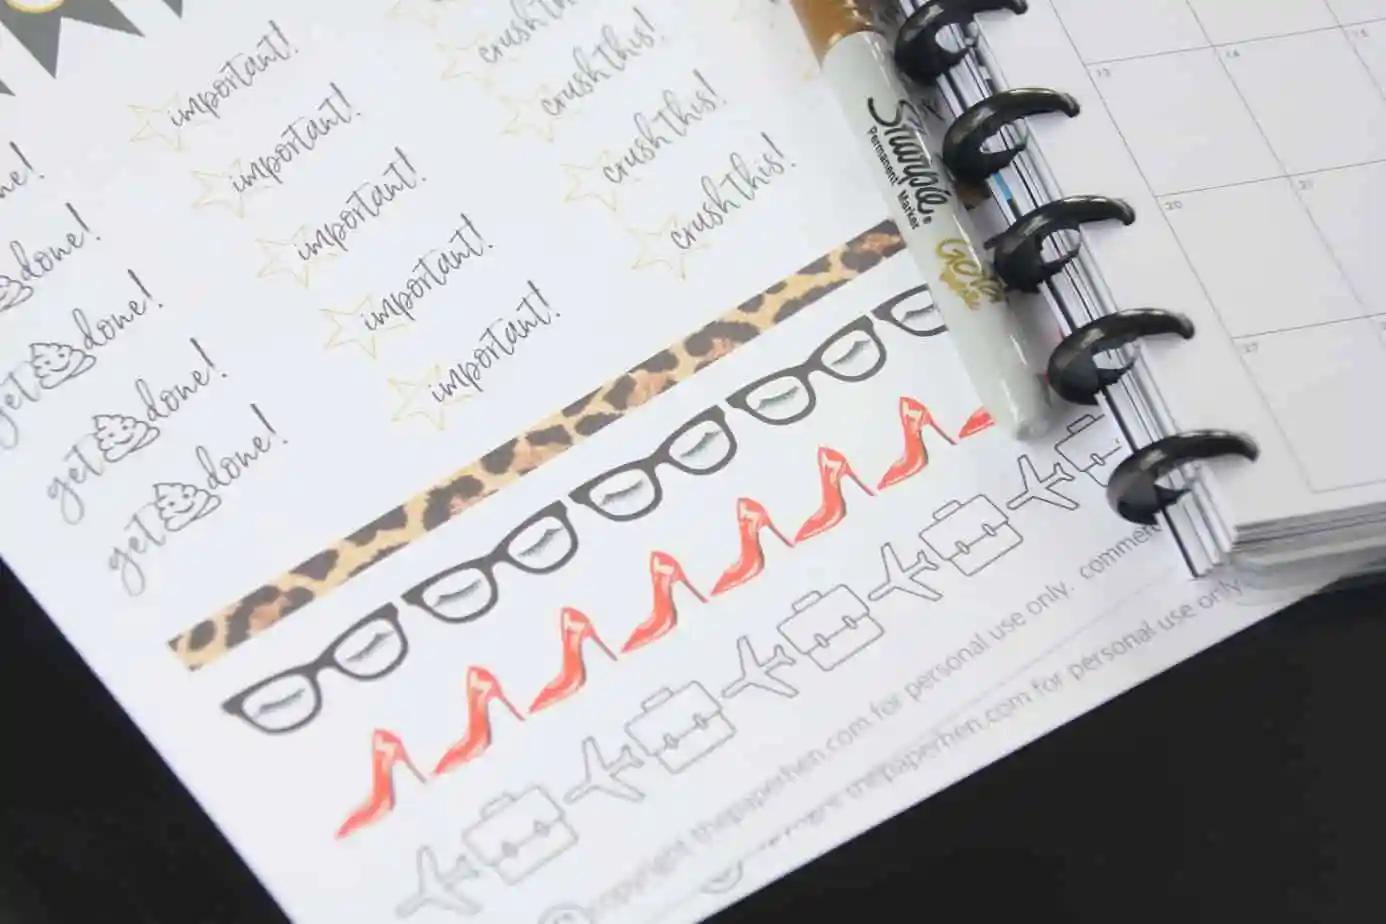 important!
important!
important!
important!
important!
crush this!
crush this!
crush this!
crush this!
done!
get done!
get done!
get done!
Sharpie®
Permanent Marker
Gold
13
14
15
20
21
27
copyright thepaperhen.com for personal use only.
thepaperhen.com for personal use only